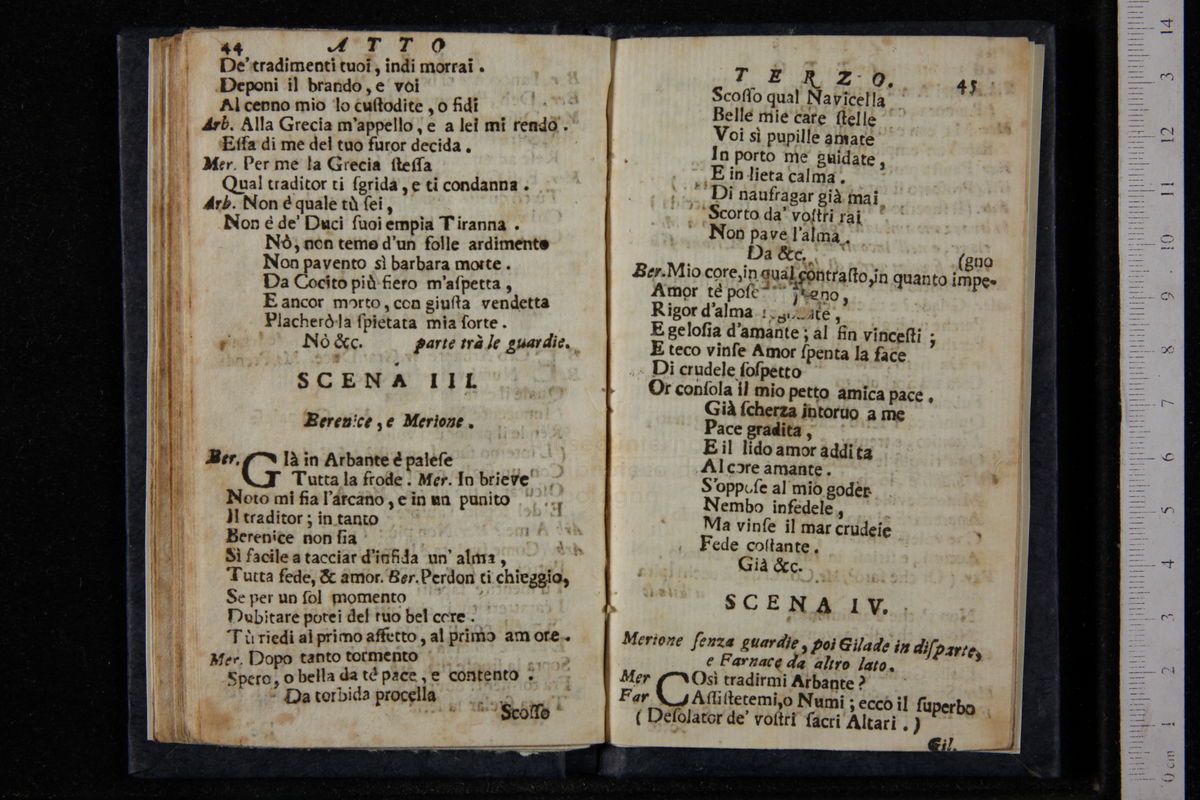 44 ATTO
De' tradimenti tuoi, indi morrai.
Deponi il brando, e voi
Al cenno mio lo cuſtodite, o fidi
Arb. Alla Grecia m'appello, e a lei mi rendo.
Eſſa di me del tuo furor decida.
Mer. Per me la Grecia ſteſſa
Qual traditor ti ſgrida, e ti condanna.
Arb. Non è quale tù ſei,
Non é de' Duci ſuoi empia Tiranna.
Nò, non temo d'un folle ardimento
Non pavento sì barbara morte.
Da Cocito più fiero m'aſpetta,
E ancor morto, con giuſta vendetta
Placherò la ſpietata mia ſorte.
Nò &c. parte trà le guardie.
SCENA III.
Berenice, e Merione.
Ber. GIà in Arbante é paleſe
Tutta la frode. Mer. In brieve
Noto mi fia l'arcano, e in un punito
Il traditor; in tanto
Berenice non ſia
Sì facile a tacciar d'infida un' alma,
Tutta fede, & amor. Ber. Perdon ti chieggio,
Se per un ſol momento
Dubitare potei del tuo bel core.
Tù riedi al primo affetto, al primo amore.
Mer. Dopo tanto tormento
Spero, o bella da tè pace, e contento.
Da torbida procella
Scoſſo
TERZO. 45
Scoſſo qual Navicella
Belle mie care ſtelle
Voi sì pupille amate
In porto me guidate,
E in lieta calma.
Di naufragar già mai
Scorto da' voſtri rai
Non pave l'alma.
Da &c.
(gno
Ber. Mio core, in qual contraſto, in quanto impe-
Amor té poſe
Rigor d'alma
E geloſia d'amante; al fin vinceſti;
E teco vinſe Amor ſpenta la face
Di crudele ſoſpetto
Or conſola il mio petto amica pace.
Già ſcherza intoruo a me
Pace gradita,
E il lido amor addita
Al core amante.
S'oppoſe al mio goder
Nembo infedele,
Ma vinſe il mar crudele
Fede coſtante.
Già &c.
SCENA IV.
Merione ſenza guardie, poi Gilade in diſparte,
e Farnace da altro lato.
Mer COsì tradirmi Arbante?
Far Aſſiſtetemi, o Numi; ecco il ſuperbo
(Deſolator de' voſtri ſacri Altari.)
Gil.
0 cm 1 2 3 4 5 6 7 8 9 10 11 12 3 14